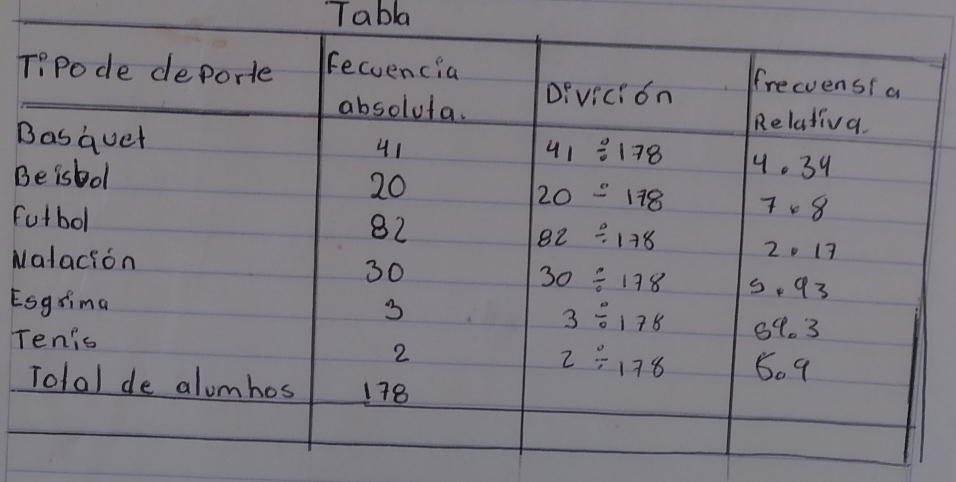 Tabla
Tipo de deporte fecuencia absoluta. Divición frecuensia Relativa.
Basquet 41 41 ÷ 178 4.34
Beisbol 20 20 ÷ 178 7.8
futbol 82 82 ÷ 178 2.17
Natación 30 30 ÷ 178 5.93
Esgrima 3 3 ÷ 178 59.3
Tenis 2 2 ÷ 178 5.9
Total de alumnos 178